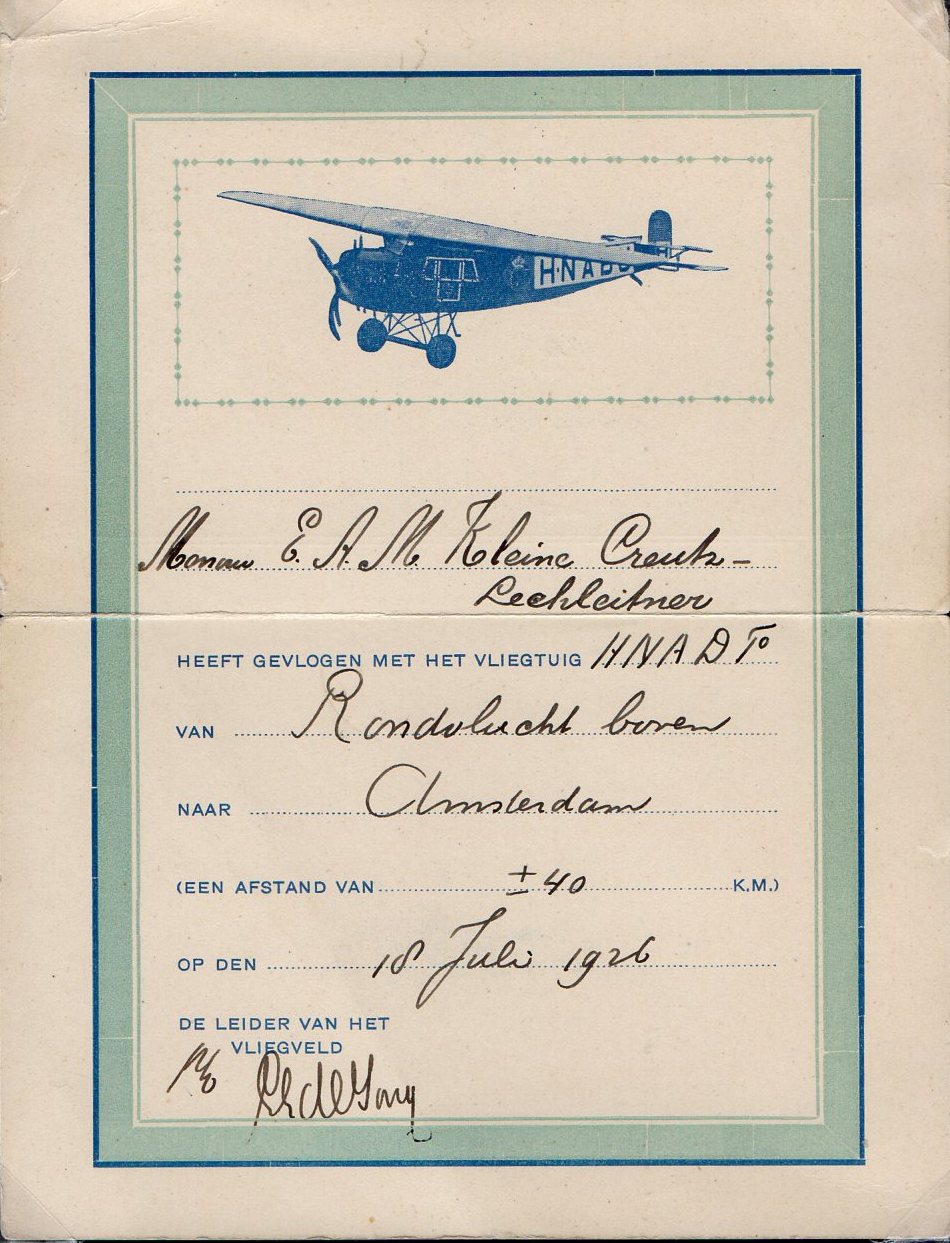 H-NAB
Mevrouw E. A. M. Kleine Creutz-
Lechleitner
HEEFT GEVLOGEN MET HET VLIEGTUIG HNADP
VAN Rondvlucht boven
NAAR Amsterdam
(EEN AFSTAND VAN ± 40 K.M.)
OP DEN 18 Juli 1926
DE LEIDER VAN HET
VLIEGVELD